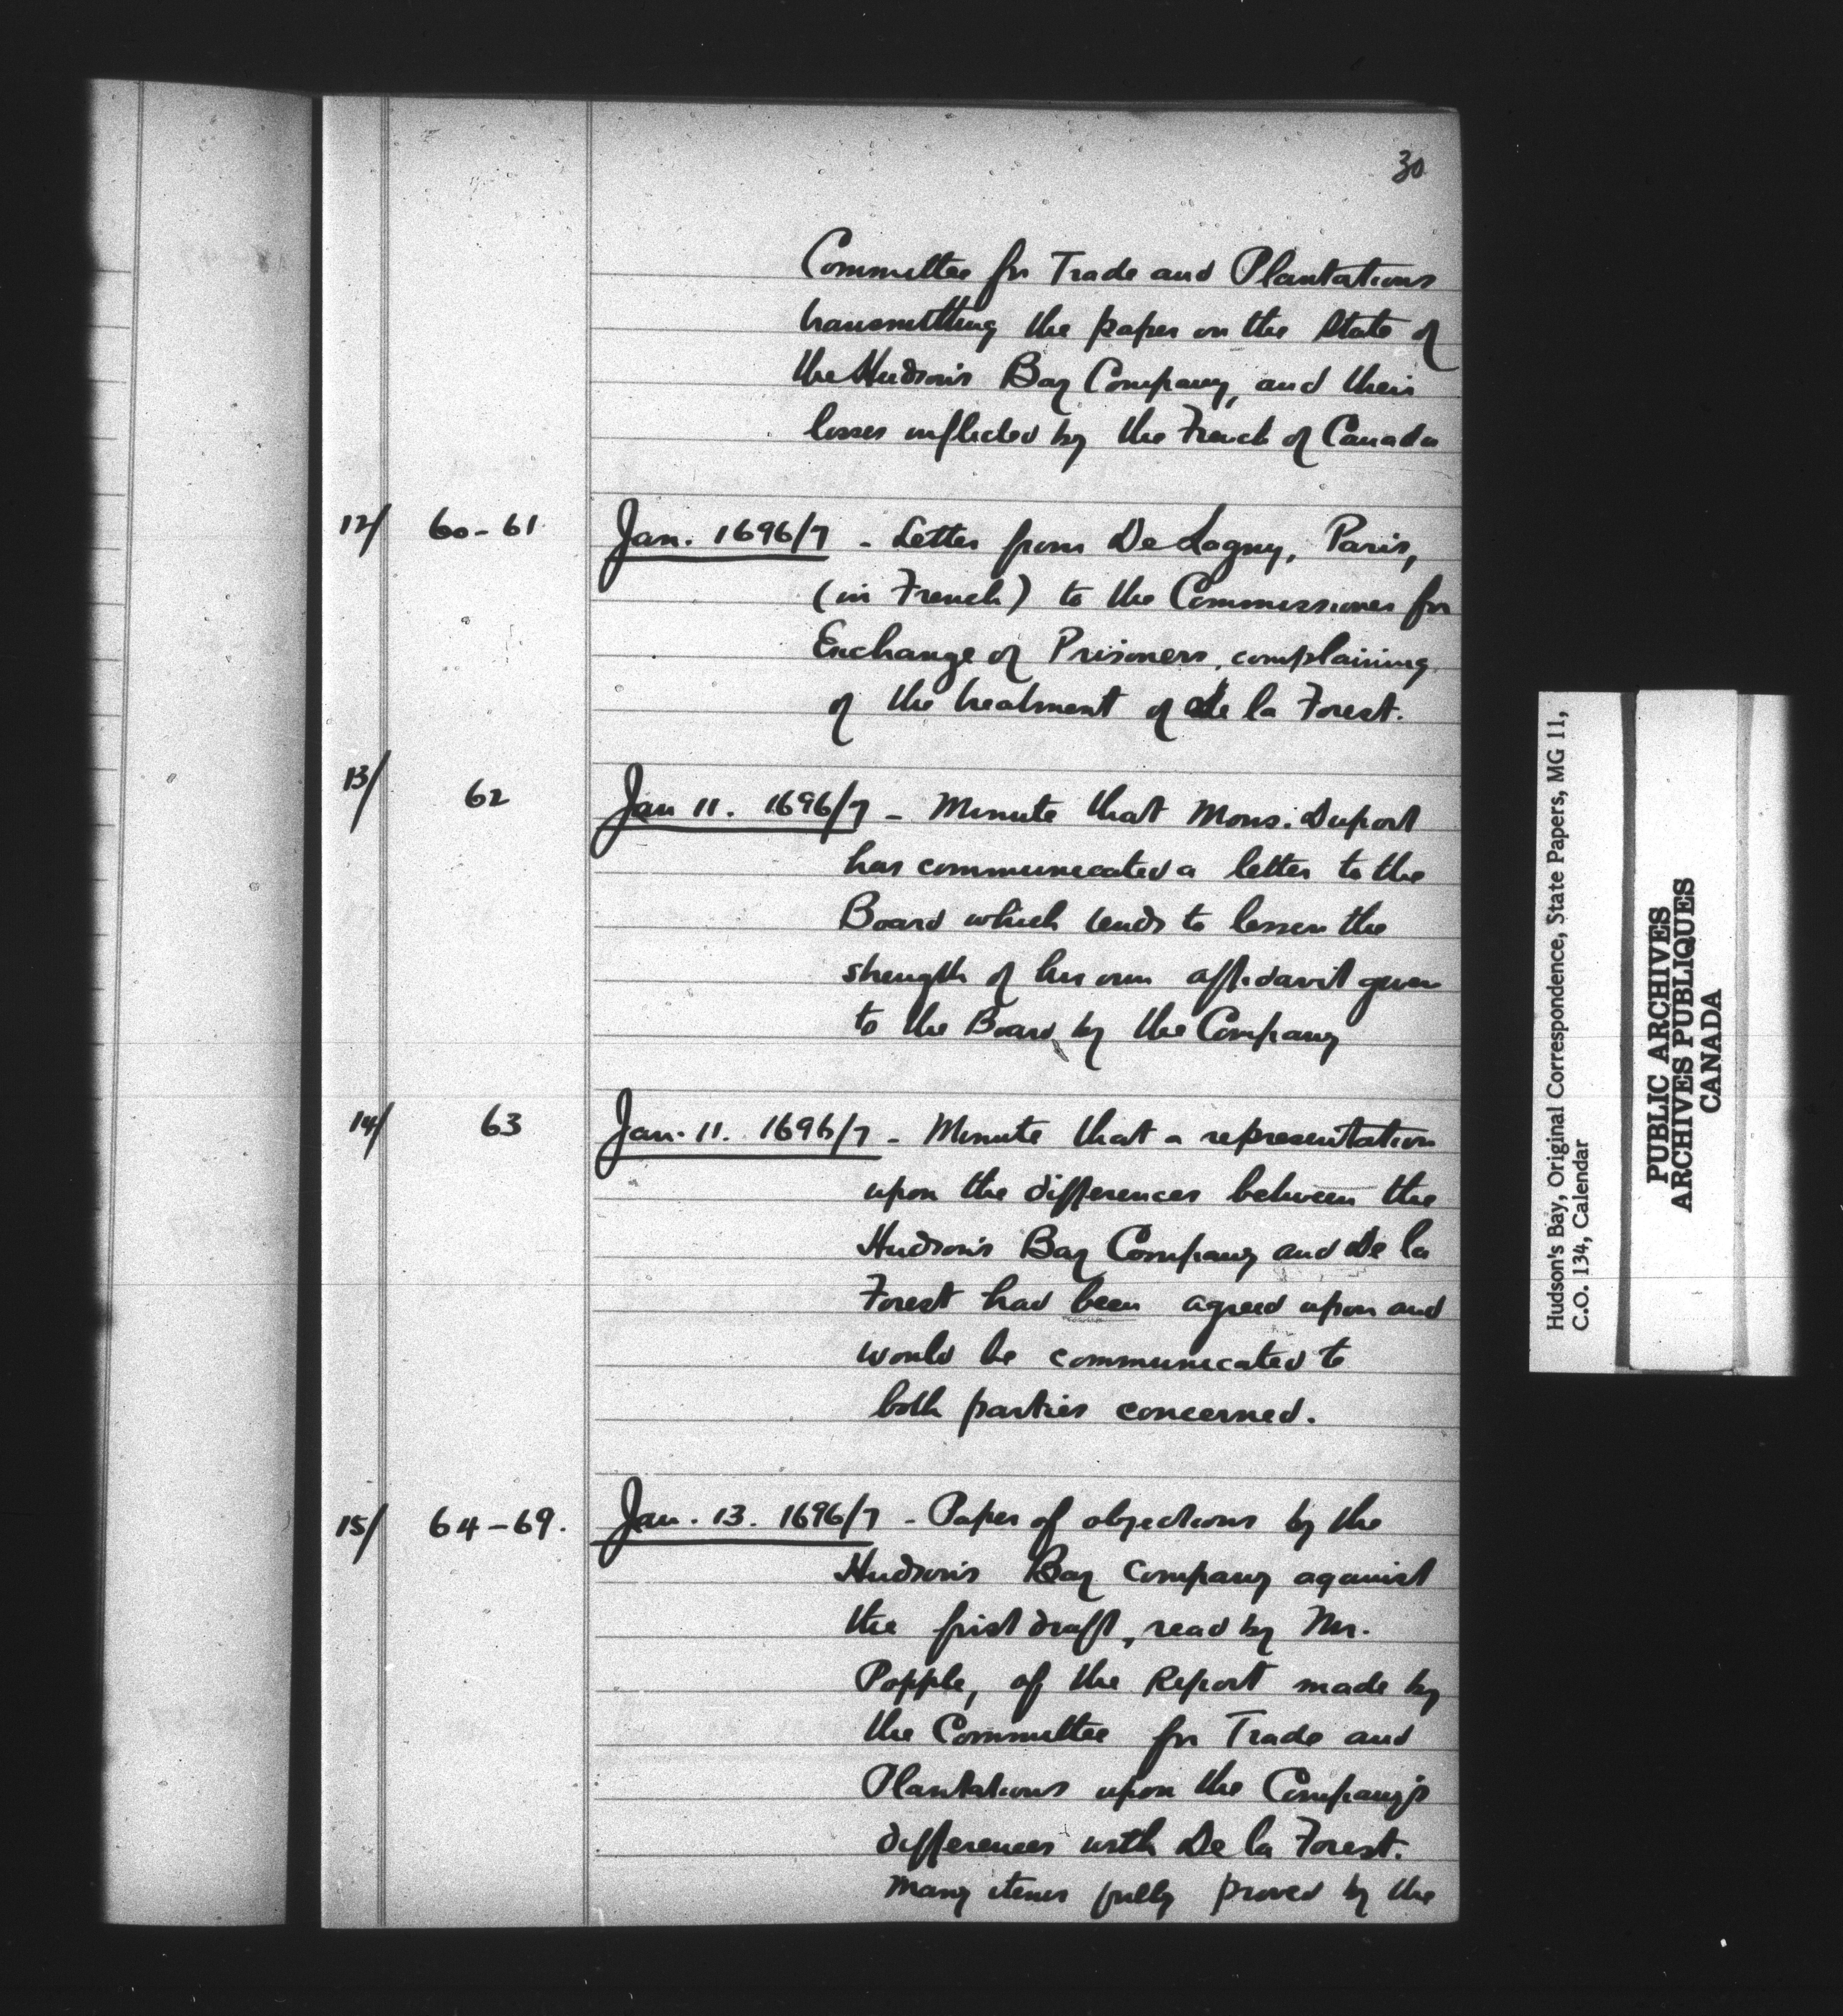 30
Committee for Trade and Plantations
transmitting the paper on the State of
the Hudson's Bay Company, and their
losses inflicted by the French of Canada
12/ 60-61 Jan. 1696/7 - Letter from De Lagny, Paris,
(in French) to the Commissioner for
Exchange of Prisoners, complaining
of the treatment of De la Forest.
13/ 62 Jan 11. 1696/7 - Minute that Mons. Duport
has communicated a letter to the
Board which tends to lessen the
strength of his own affidavit given
to the Board by the Company
14/ 63 Jan. 11. 1696/7 - Minute that a representation
upon the differences between the
Hudson's Bay Company and De la
Forest had been agreed upon and
would be communicated to
both parties concerned.
15/ 64-69. Jan. 13. 1696/7 - Paper of objections by the
Hudson's Bay Company against
the first draft, read by Mr.
Popple, of the Report made by
the Committee for Trade and
Plantations upon the Company's
differences with De la Forest.
Many items fully proved by the
Hudson's Bay, Original Correspondence, State Papers, MG 11,
C.O. 134, Calendar
PUBLIC ARCHIVES
ARCHIVES PUBLIQUES
CANADA